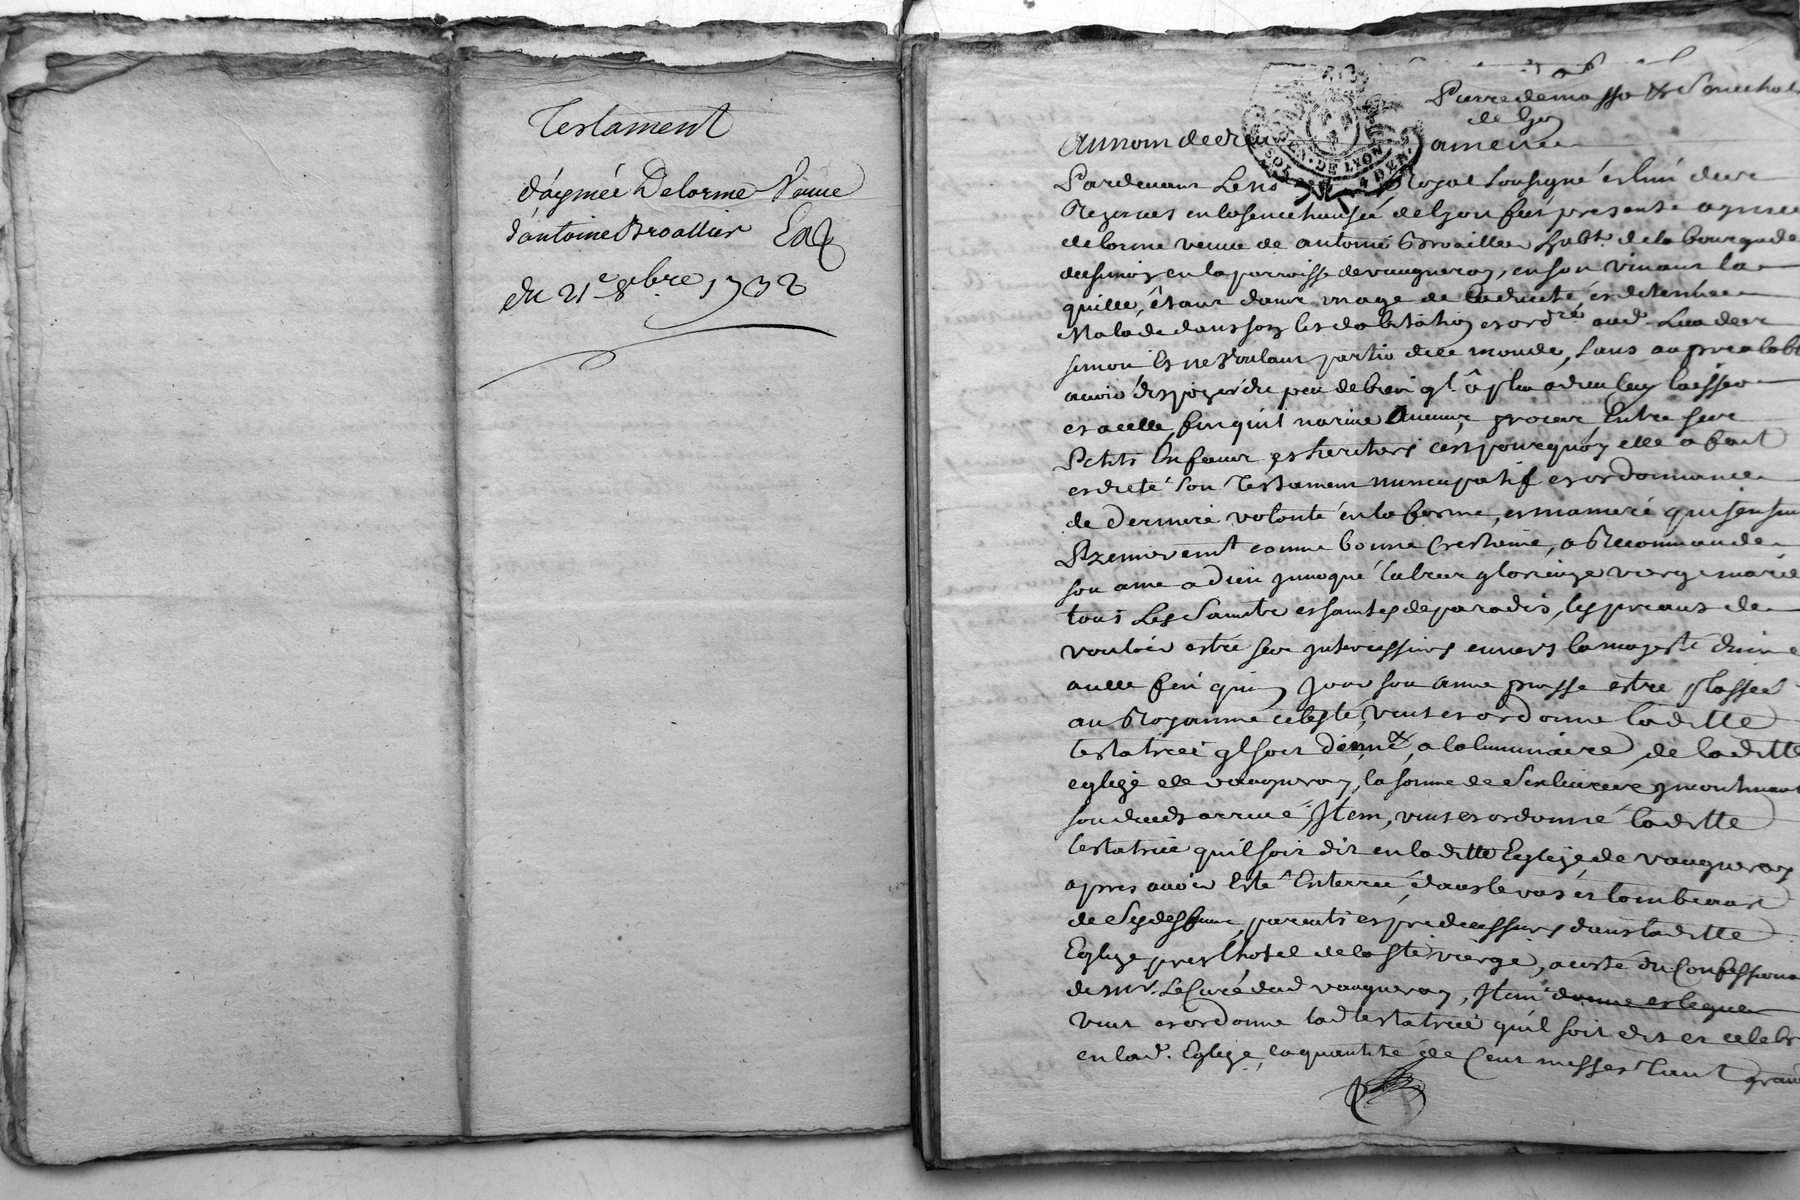 Testament
d'aymée Delorme Veuve
d'antoine Broallier
du 21e 8bre 1732
Pierre de masso & Senechal
de Lyon
Au nom de dieu amen
GEN. DE LYON
SOLS DEN.
Pardevant Le no Royal soussigné es
Rezerves en la senechaussée de Lyon fut presente aymee
delorme veuve de antoine Broaillier habt. de la bourgade
en la parroisse de vaugneray, en son vivant la
quille, étant dans usage de et detenüe
Malade dans son lit et ordre aud. Lieu de
simon Et ne Voulant partir de ce monde, sans au prealabl
avoir disposer du peu de bien ql. â plu a dieu luy laisser
et a celle fin qu'il narive Aucune proces Entre ses
Petits Enfans es heritiers cest pourquoy elle a fait
et dicté son Testament nuncupatif es ordonnance
de derniere volonté en la forme, et maniere qui sensui
Premierement comme bonne Crestiene, a Recommande
son ame a dieu Jnvoqué la bien glorieuze vierge marie
tous Les Saints es saintes de paradis, les priant de
vouloir estre ses jntercessurs envers la majesté divine
a celle fin qu'un Jour son ame puisse estre plassée
au Royaume celeste, veut es ordonne laditte
testatrice ql soit donné, a la luminaire, de laditte
eglize de vaugneray, la somme de Six livres
son deceds arrivé, Item, veut es ordonné laditte
testatrice quil soit dit en laditte Eglize de vaugneray
apres avoir Esté Enterrée, dans le vas es tombeaux
de Ses parents es predecessurs dans laditte
Eglize pres lhotel de la ste vierge, a costé du Confessiona
de Mr. Le Curé dud vaugneray, Item donne es legue
veut es ordonne lad testatrice quil soit dit es celebr
en lad. Eglize, la quantité de Cent messes tant grand